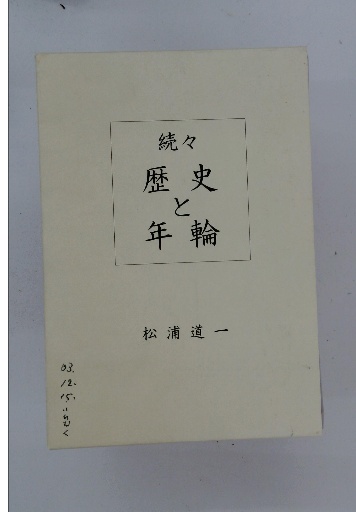 続々
歴史
と
年輪
松浦道一
03.
12.
15.